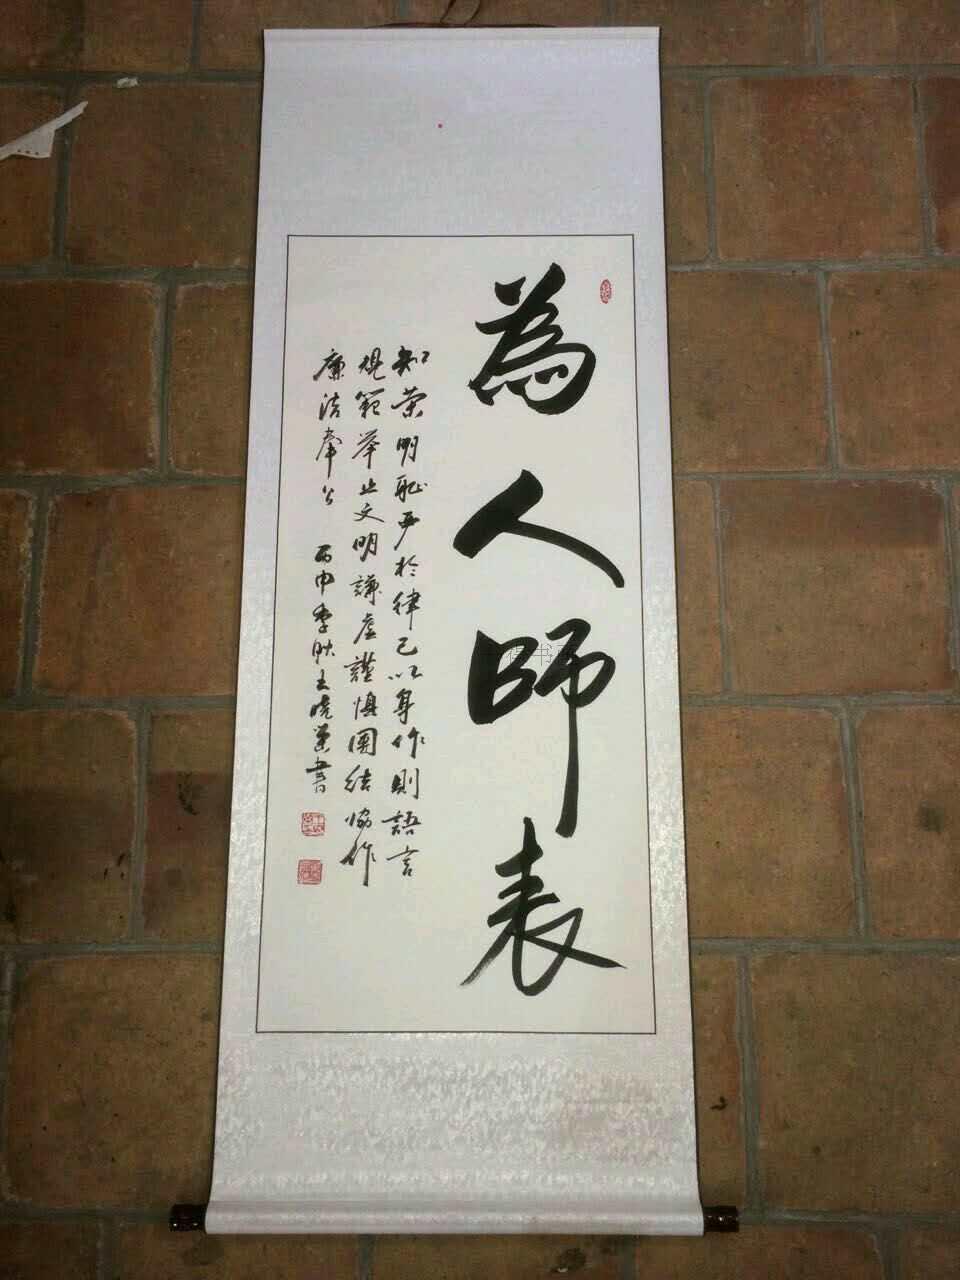 為人師表
知荣明耻严於律己以身作則語言
規範举止文明謙虚謹慎團结协作
廉洁奉公 丙申季秋王晓荣書